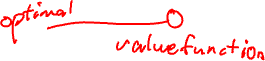 optimal
valuefunction